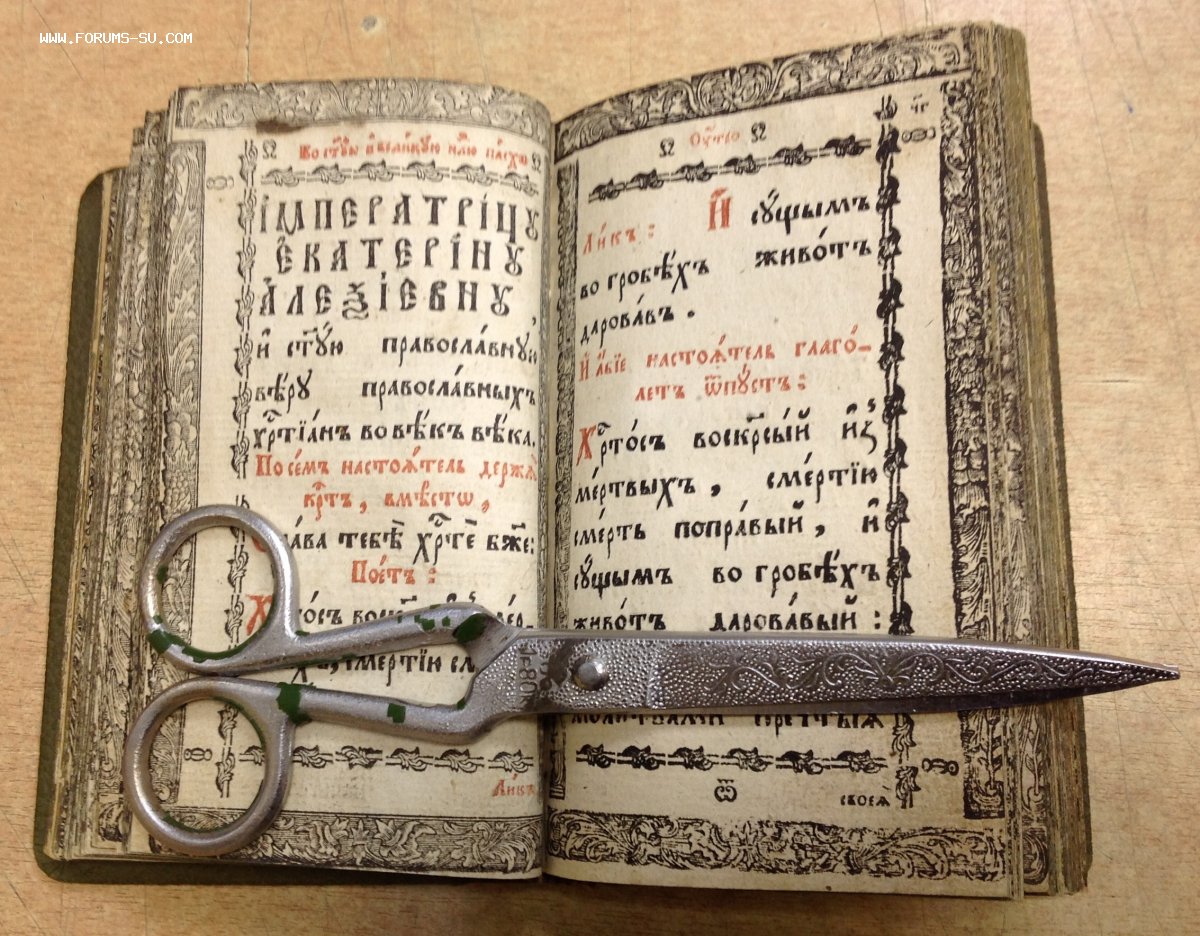 WWW.FORUMS-SU.COM
ІМПЕРАТРІЦꙋ
ЕКАТЕРІНꙋ
АЛЕѮІЕВНꙋ,
и҆ ст҃ꙋ́ю правосла́внꙋю
вѣ́рꙋ правосла́вныхъ
хрⷭ҇тїа́нъ во вѣ́къ вѣ́ка.
По се́мъ настоѧ́тель держѧ̀
крⷭ҇тъ, вмѣ́стѡ,
сла́ва тебѣ̀ хрⷭ҇тѐ бж҃е:
Пое́тъ:
смертїю
Ли́къ
Оу҆́тро
Ли́къ: И҆ сꙋ́щымъ
во гробѣ́хъ живо́тъ
дарова́въ.
И҆ а҆́бїе настоѧ́тель глаго́-
летъ ѿпꙋ́стъ:
Хрⷭ҇то́съ воскрⷭ҇сы́й и҆з̾
ме́ртвыхъ, сме́ртїю
сме́рть попра́вый, и҆
сꙋ́щымъ во гробѣ́хъ
живо́тъ дарова́вый:
своеѧ̀